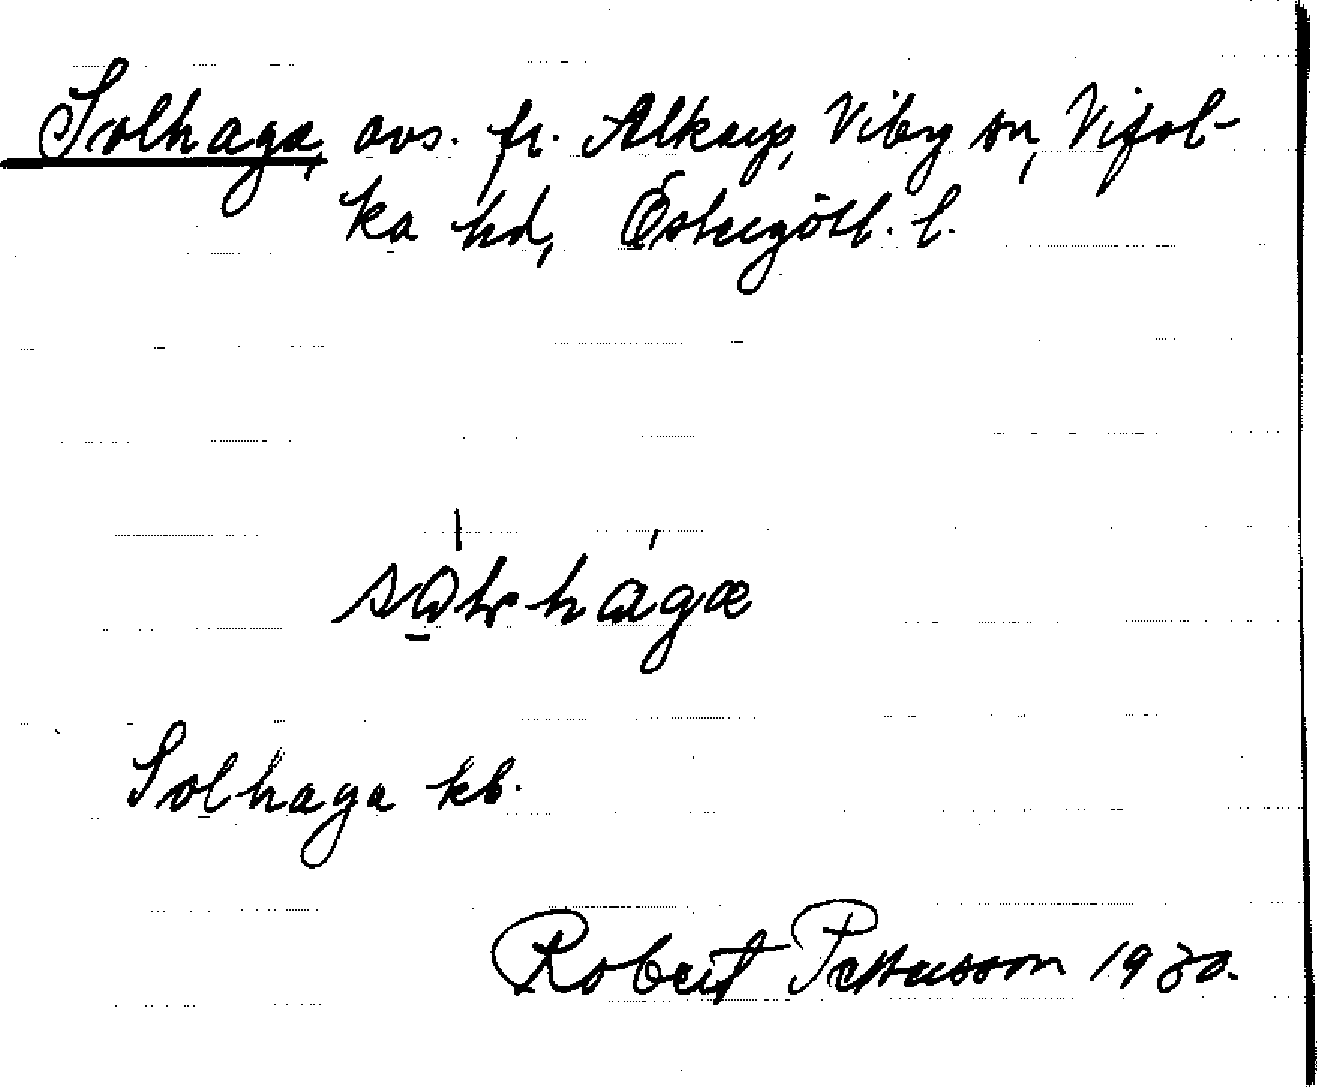 Solhaga, avs. fr. Alkarp, Viby sn, Vifol-
ka hd, Östergötl. l.
Solhaga kb.
Robert Pettersson 1930.